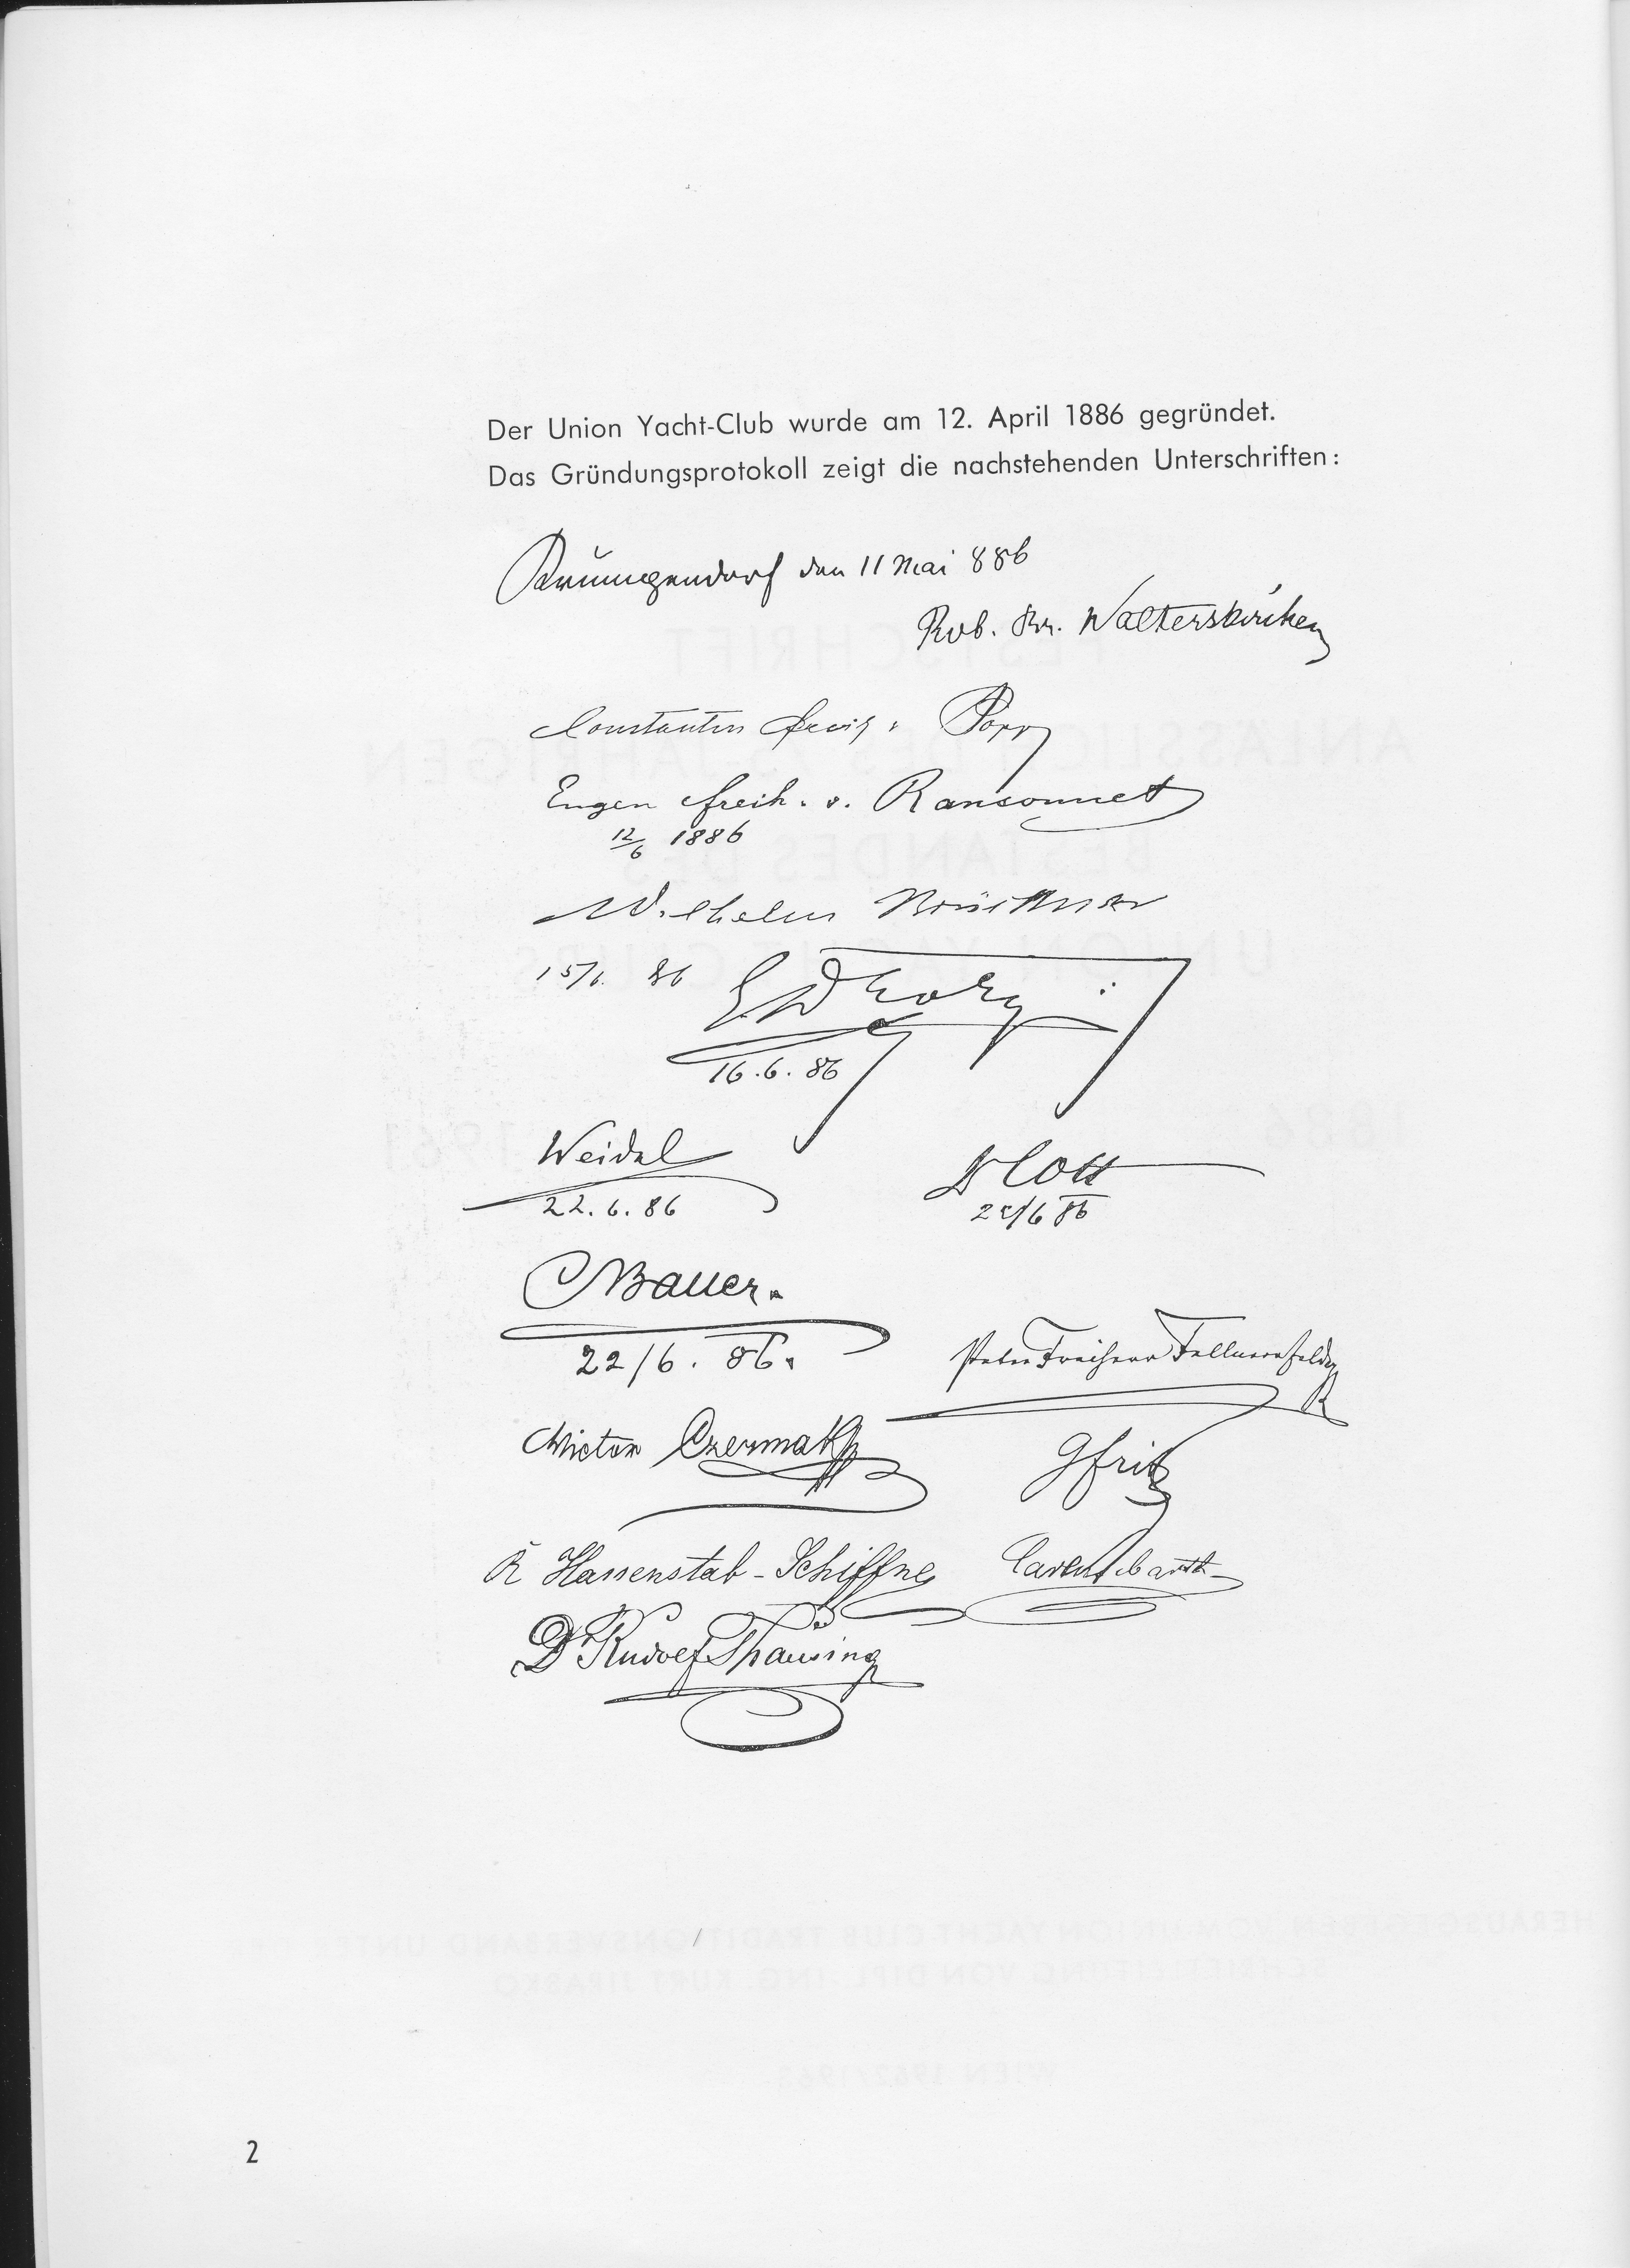 Der Union Yacht-Club wurde am 12. April 1886 gegründet.
Das Gründungsprotokoll zeigt die nachstehenden Unterschriften:
den 11 Mai 886
Rob. Fr. Walterskirchen
Constantin Freih. v. Popp
Eugen Freih. v. Ransonnet
12/6 1886
Wilhelm Brückner
15/6. 86
16.6.86
Weidel
22.6.86
Bauer.
22/6. 86.
Peter Freiherr
Victor Czermak
GFritz
R Hassenstab-Schiffner
Dr Rudolf Thausing
2